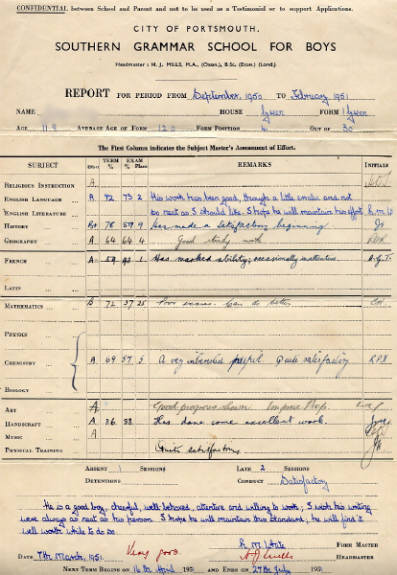 CONFIDENTIAL between School and Parent and not to be used as a Testimonial or to support Applications.
CITY OF PORTSMOUTH.
SOUTHERN GRAMMAR SCHOOL FOR BOYS
Headmaster: H. J. MILLS, M.A., (Oxon.), B.Sc. (Econ.) (Lond.)
REPORT FOR PERIOD FROM September, 1950 TO February 1951
NAME HOUSE FORM
AGE 11.8 AVERAGE AGE OF FORM FORM POSITION OUT OF 30
The First Column indicates the Subject Master's Assessment of Effort.
SUBJECT TERM % EXAM % Place REMARKS INITIALS
RELIGIOUS INSTRUCTION A
ENGLISH LANGUAGE A 72 73 2 His work has been good, though a little and not
ENGLISH LITERATURE so neat as I should like. I hope he will maintain his effort R.M.W
HISTORY 78 59 9 Has made a satisfactory beginning
GEOGRAPHY A 64 64 4 Good steady work
FRENCH A 1 Has marked ability; occasionally inattentive. A.G.T.
LATIN
MATHEMATICS B 72 37 25 Poor exam. Can do better
PHYSICS
CHEMISTRY A 69 57 5 A very interested pupil Quite satisfactory
BIOLOGY
ART A Good progress shown
HANDICRAFT A 36 Has done some excellent work.
MUSIC A
PHYSICAL TRAINING Quite satisfactory
ABSENT 1 SESSIONS LATE 2 SESSIONS
DETENTIONS CONDUCT Satisfactory
He is a good boy, cheerful, well behaved, attentive and willing to work; I wish his writing
were always as neat as his person. I hope he will maintain this standard; he will find it
well worth while to do so.
R M White FORM MASTER
DATE 7th March, 1951 Very good H J Mills HEADMASTER
NEXT TERM BEGINS ON 16th April 1951 AND ENDS ON 27th July 1951